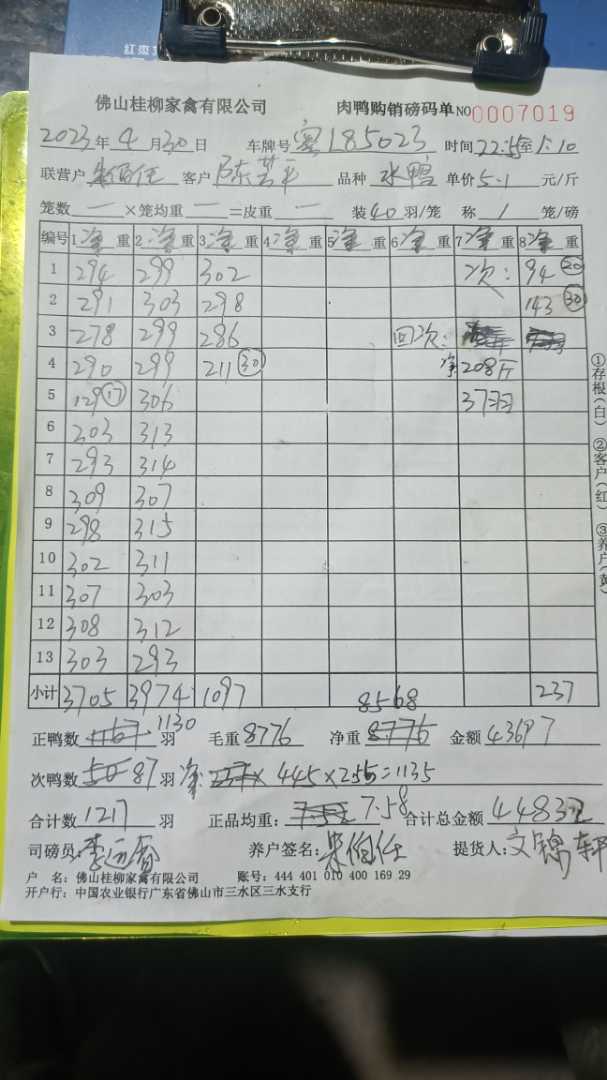 佛山桂柳家禽有限公司 肉鸭购销磅码单 NO 0007019
2023年4月30日 车牌号 粤L85023 时间 22:15至1:10
联营户 客户 陈 平 品种 水鸭 单价 5.1 元/斤
笼数 一 ×笼均重 一 =皮重 一 装40羽/笼 称 1 笼/磅
编号 1净重 2净重 3净重 4净重 5净重 6净重 7净重 8净重
1 294 299 302 次: 94 20
2 291 303 298 143 30
3 278 299 286 回次:
4 290 299 211 30 净 208斤
5 129 17 306 37羽
6 303 313
7 293 314
8 309 307
9 298 315
10 302 311
11 307 303
12 308 312
13 303 293
小计 3705 3974 1097 8568 237
正鸭数 1130 羽 毛重 8776 净重 8776 金额 43697
次鸭数 50 87 羽 净 × 445×2.55=1135
合计数 1217 羽 正品均重: 7.58 合计总金额 44832
司磅员: 李 养户签名: 朱伯任 提货人: 文锦轩
户 名: 佛山桂柳家禽有限公司 账号: 444 401 010 400 169 29
开户行: 中国农业银行广东省佛山市三水区三水支行
①存根(白) ②客户(红) ③养户(黄)